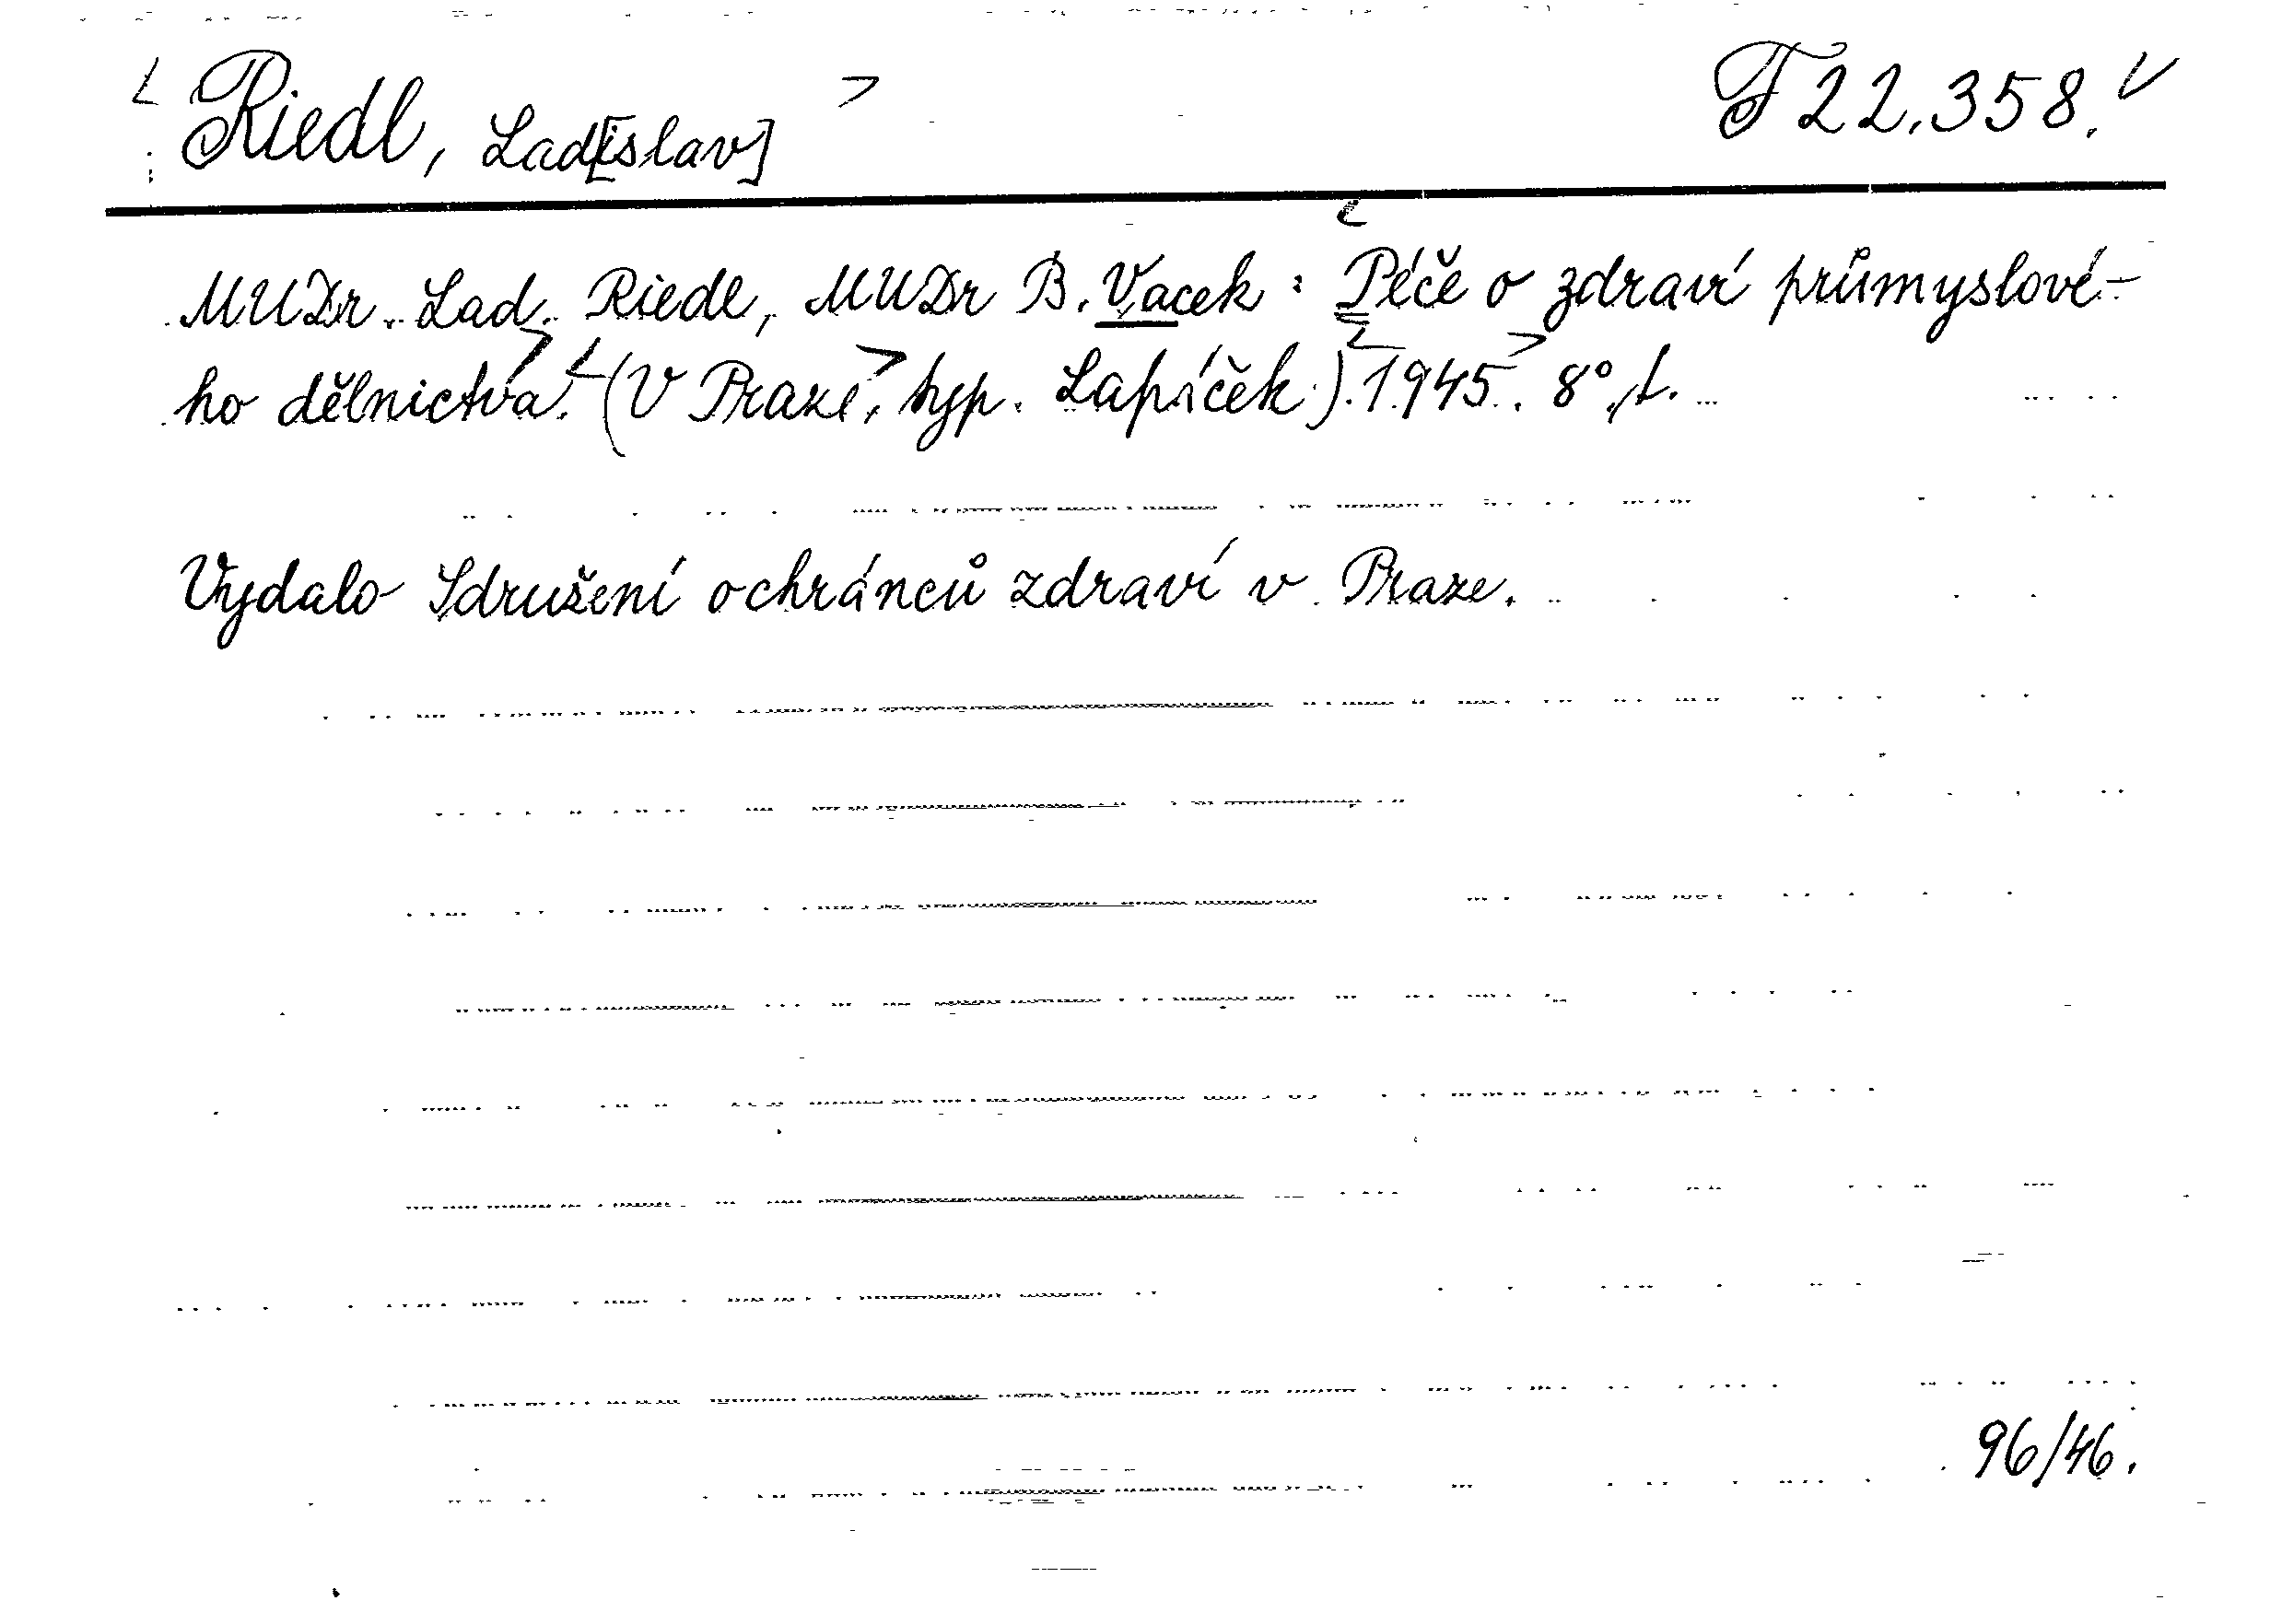 Riedl, Lad[islav]
T 22.358.
MUDr. Lad. Riedl, MUDr B. Vacek: Péče o zdraví průmyslové-
ho dělnictva. (V Praze, typ. Lapáček). 1945. 8°,
Vydalo Sdružení ochránců zdraví v Praze.
96/46.